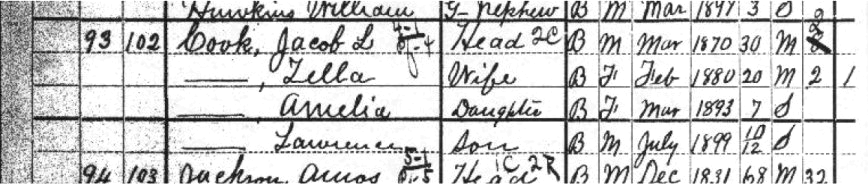 Hawkins William G-nephew B M Mar 1897 3 S
93 102 Cook, Jacob L Head B M Mar 1870 30 M
——, Zella Wife B F Feb 1880 20 M 2 1
——, Amelia Daughter B F Mar 1893 7 S
—— Lawrence Son B M July 1899 10/12 S
94 103 Jackson, Amos Head B M Dec 1831 68 M 32